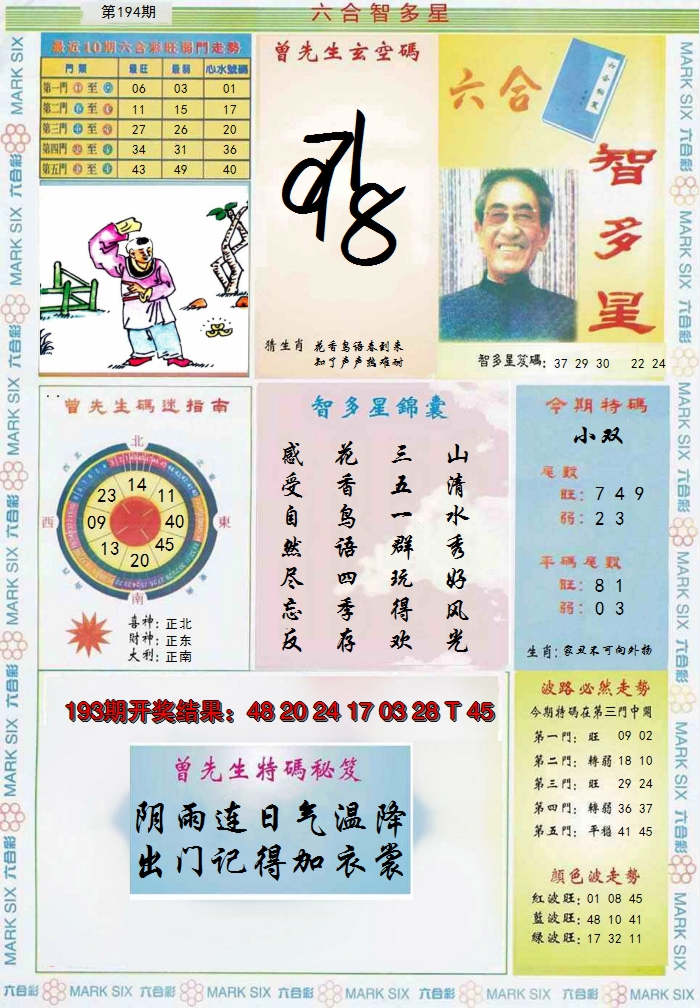 第194期
六合智多星
最近10期六合彩旺弱門走勢
門票 最旺 最弱 心水號碼
第一門 至 06 03 01
第二門 至 11 15 17
第三門 至 27 26 20
第四門 至 34 31 36
第五門 至 43 49 40
曾先生玄空碼
猜生肖 花香鸟语春到来
知了声声热难耐
六合
六合秘笈
智多星
智多星笈碼: 37 29 30 22 24
曾先生碼迷指南
北
西
東
南
14
11
40
45
20
13
09
23
喜神: 正北
財神: 正东
大利: 正南
智多星錦囊
山清水秀好风光
三五一群玩得欢
花香鸟语四季存
感受自然尽忘反
今期特碼
小双
尾數
旺: 7 4 9
弱: 2 3
平碼尾數
旺: 8 1
弱: 0 3
生肖: 家丑不可向外扬
193期开奖结果: 48 20 24 17 03 28 T 45
曾先生特碼秘笈
阴雨连日气温降
出门记得加衣裳
波路必然走势
今期特碼在第三門中開
第一門: 旺 09 02
第二門: 轉弱 18 10
第三門: 旺 29 24
第四門: 轉弱 36 37
第五門: 平穩 41 45
顏色波走勢
紅波旺: 01 08 45
藍波旺: 48 10 41
綠波旺: 17 32 11
MARK SIX 六合彩